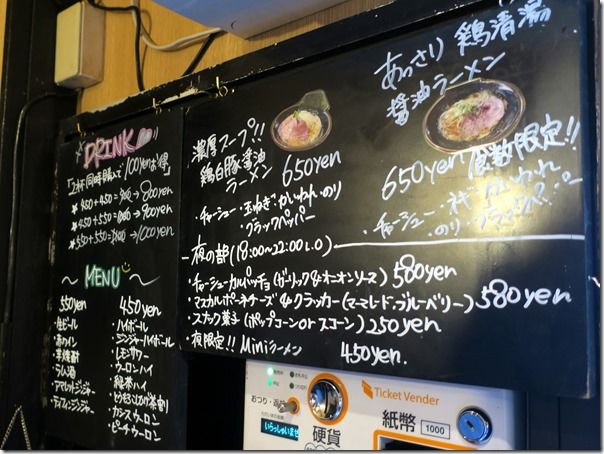 DRINK
「2杯同時購入で100yenお得」
450+450=900→800yen
450+550=→900yen
550+550=→1000yen
MENU
550yen
・生ビール
・赤ワイン
・芋焼酎
・ラム酒
・アマレットジンジャー
450yen
・ハイボール
・ジンジャーハイボール
・レモンサワー
・ウーロンハイ
・緑茶ハイ
・カシスウーロン
・ピーチウーロン
濃厚スープ!!
鶏白豚醤油
ラーメン
650yen
・チャーシュー・玉ねぎ・かいわれ・のり
・ブラックペッパー
あっさり 鶏清湯
醤油ラーメン
650yen 食数限定!!
・チャーシュー・ネギ・かいわれ
・のり・ブラックペッパー
夜の部(18:00~22:00 L.O)
・チャーシューカルパッチョ(ガーリック&オニオンソース) 580yen
・マスカルポーネチーズ&クラッカー(ママレード・ブルーベリー) 580yen
・スナック菓子(ポップコーン or スコーン) 250yen
・夜限定!! Miniラーメン 450yen.
Ticket Vender
おつり・返却
いらっしゃいませ
硬貨
紙幣
1000